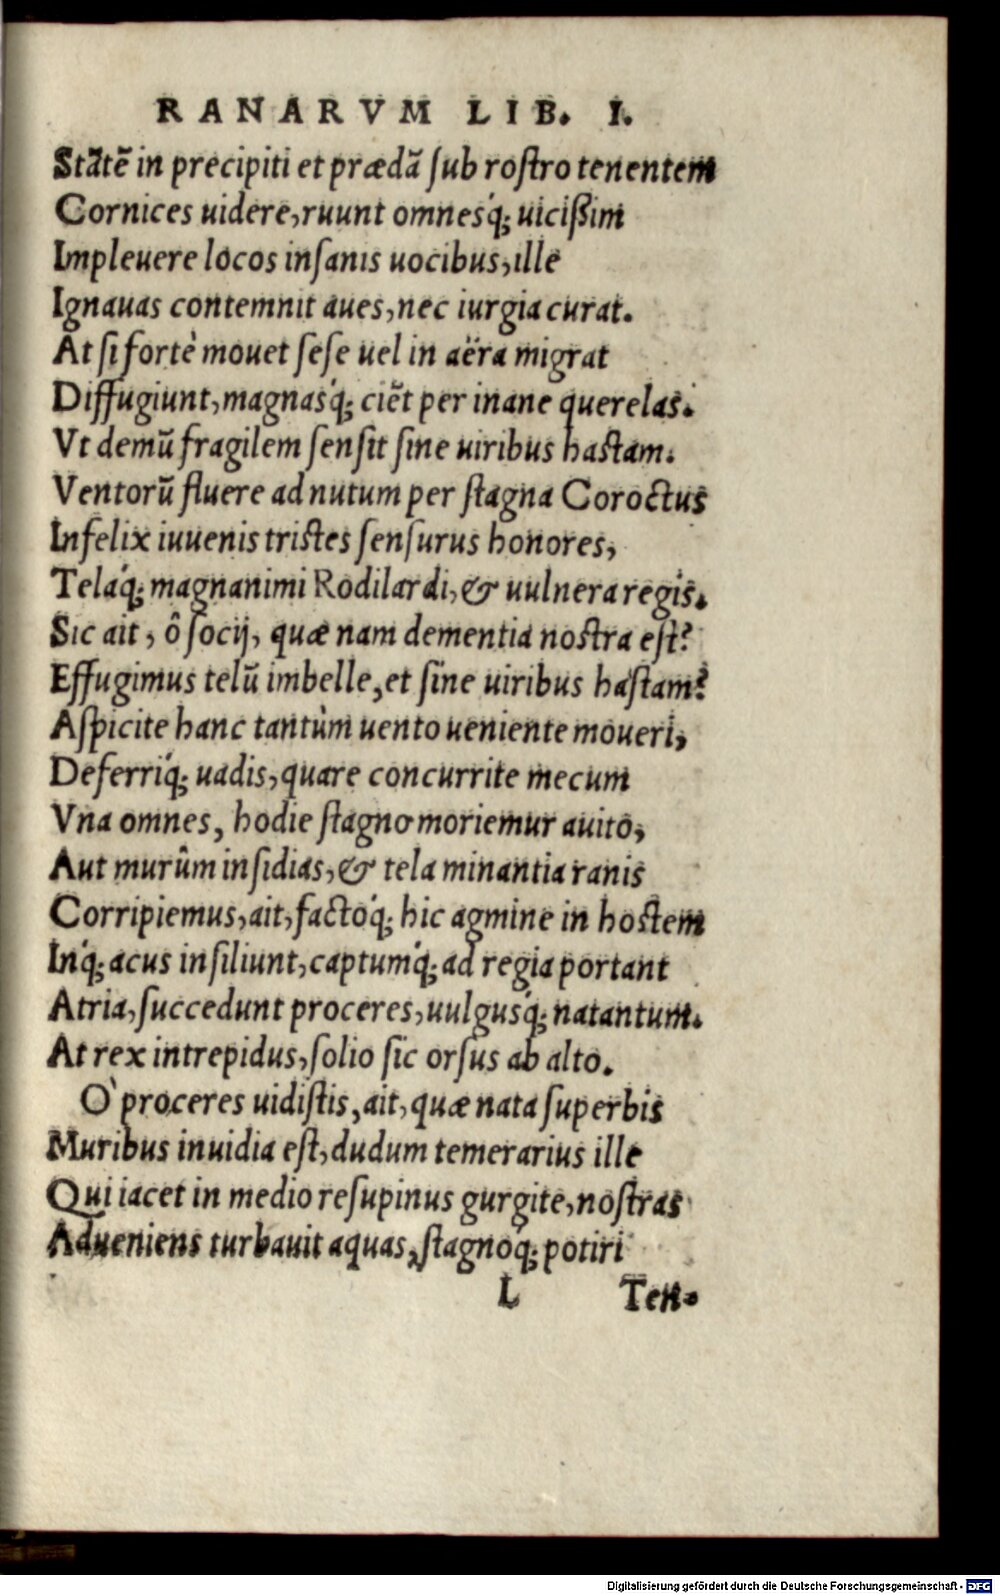 RANARVM LIB. I.
Stātē in precipiti et prædā ſub roſtro tenentem
Cornices uidere, ruunt omnesq́; uicißim
Impleuere locos inſanis uocibus, ille
Ignauas contemnit aues, nec iurgia curat.
At ſi fortè mouet ſeſe uel in aëra migrat
Diffugiunt, magnasq́; ciēt per inane querelas.
Vt demū fragilem ſenſit ſine uiribus haſtam.
Ventorū fluere ad nutum per ſtagna Coroctus
Infelix iuuenis triſtes ſenſurus honores,
Telaq́; magnanimi Rodilardi, & uulnera regis.
Sic ait, ô ſocij, quæ nam dementia noſtra eſt?
Effugimus telū imbelle, et ſine uiribus haſtam?
Aſpicite hanc tantùm uento ueniente moueri,
Deferriq́; uadis, quare concurrite mecum
Vna omnes, hodie ſtagno moriemur auito,
Aut murûm inſidias, & tela minantia ranis
Corripiemus, ait, factoq́; hic agmine in hoſtem
Inq́; acus inſiliunt, captumq́; ad regia portant
Atria, ſuccedunt proceres, uulgusq́; natantum.
At rex intrepidus, ſolio ſic orſus ab alto.
Ò proceres uidiſtis, ait, quæ nata ſuperbis
Muribus inuidia eſt, dudum temerarius ille
Qui iacet in medio reſupinus gurgite, noſtras
Adueniens turbauit aquas, ſtagnoq́; potiri
L Ten-
Digitalisierung gefördert durch die Deutsche Forschungsgemeinschaft - DFG